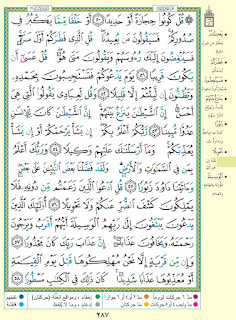 ۞ قُلْ كُونُوا۟ حِجَارَةً أَوْ حَدِيدًا ٥٠ أَوْ خَلْقًا مِّمَّا يَكْبُرُ فِى
صُدُورِكُمْ فَسَيَقُولُونَ مَن يُعِيدُنَا قُلِ ٱلَّذِى فَطَرَكُمْ أَوَّلَ مَرَّةٍ
فَسَيُنْغِضُونَ إِلَيْكَ رُءُوسَهُمْ وَيَقُولُونَ مَتَىٰ هُوَ قُلْ عَسَىٰٓ أَن
يَكُونَ قَرِيبًا ٥١ يَوْمَ يَدْعُوكُمْ فَتَسْتَجِيبُونَ بِحَمْدِهِۦ
وَتَظُنُّونَ إِن لَّبِثْتُمْ إِلَّا قَلِيلًا ٥٢ وَقُل لِّعِبَادِى يَقُولُوا۟ ٱلَّتِى هِىَ
أَحْسَنُ إِنَّ ٱلشَّيْطَٰنَ يَنزَغُ بَيْنَهُمْ إِنَّ ٱلشَّيْطَٰنَ كَانَ لِلْإِنسَٰنِ
عَدُوًّا مُّبِينًا ٥٣ رَّبُّكُمْ أَعْلَمُ بِكُمْ إِن يَشَأْ يَرْحَمْكُمْ أَوْ إِن يَشَأْ
يُعَذِّبْكُمْ وَمَآ أَرْسَلْنَٰكَ عَلَيْهِمْ وَكِيلًا ٥٤ وَرَبُّكَ أَعْلَمُ
بِمَن فِى ٱلسَّمَٰوَٰتِ وَٱلْأَرْضِ وَلَقَدْ فَضَّلْنَا بَعْضَ ٱلنَّبِيِّۦنَ عَلَىٰ بَعْضٍ
وَءَاتَيْنَا دَاوُۥدَ زَبُورًا ٥٥ قُلِ ٱدْعُوا۟ ٱلَّذِينَ زَعَمْتُم مِّن دُونِهِۦ فَلَا
يَمْلِكُونَ كَشْفَ ٱلضُّرِّ عَنكُمْ وَلَا تَحْوِيلًا ٥٦ أُو۟لَٰٓئِكَ ٱلَّذِينَ
يَدْعُونَ يَبْتَغُونَ إِلَىٰ رَبِّهِمُ ٱلْوَسِيلَةَ أَيُّهُمْ أَقْرَبُ وَيَرْجُونَ
رَحْمَتَهُۥ وَيَخَافُونَ عَذَابَهُۥٓ إِنَّ عَذَابَ رَبِّكَ كَانَ مَحْذُورًا ٥٧
وَإِن مِّن قَرْيَةٍ إِلَّا نَحْنُ مُهْلِكُوهَا قَبْلَ يَوْمِ ٱلْقِيَٰمَةِ
أَوْ مُعَذِّبُوهَا عَذَابًا شَدِيدًا كَانَ ذَٰلِكَ فِى ٱلْكِتَٰبِ مَسْطُورًا ٥٨
٢٨٧